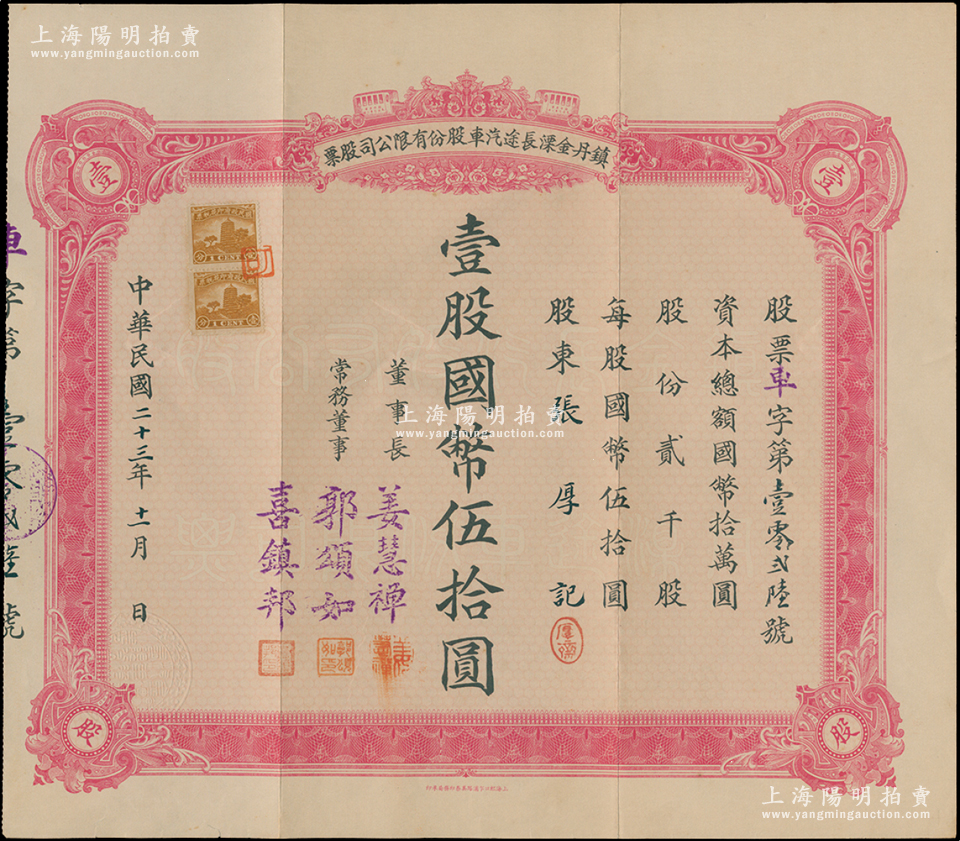 上海陽明拍賣
www.yangmingauction.com
鎮丹金溧長途汽車股份有限公司股票
壹
壹
股票車字第壹零弍陸號
資本總額國幣拾萬圓
股份貳千股
每股國幣伍拾圓
股東張厚記
壹股國幣伍拾圓
董事長
姜慧禪
常務董事
郭頌如
喜鎮邦
1 CENT
1 CENT
中華民國二十三年十一月 日
車字第壹零弍陸號
上海陽明拍賣
www.yangmingauction.com
股
股
上海陽明拍賣
www.yangmingauction.com